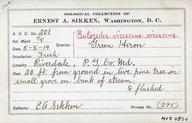 OOLOGICAL COLLECTION OF
ERNEST A. SIKKEN, WASHINGTON, D. C.
A. O. U. No. 201 Butorides virescens virescens
Set Mark 4/4 Green Heron
Date 5-5-19
Incubation Fresh
Locality Riverdale P. G. Co. Md.
Nest 20 ft. from ground in live pine tree in
small grove on bank of stream.
♀ flushed
Collector E. A. Sikken